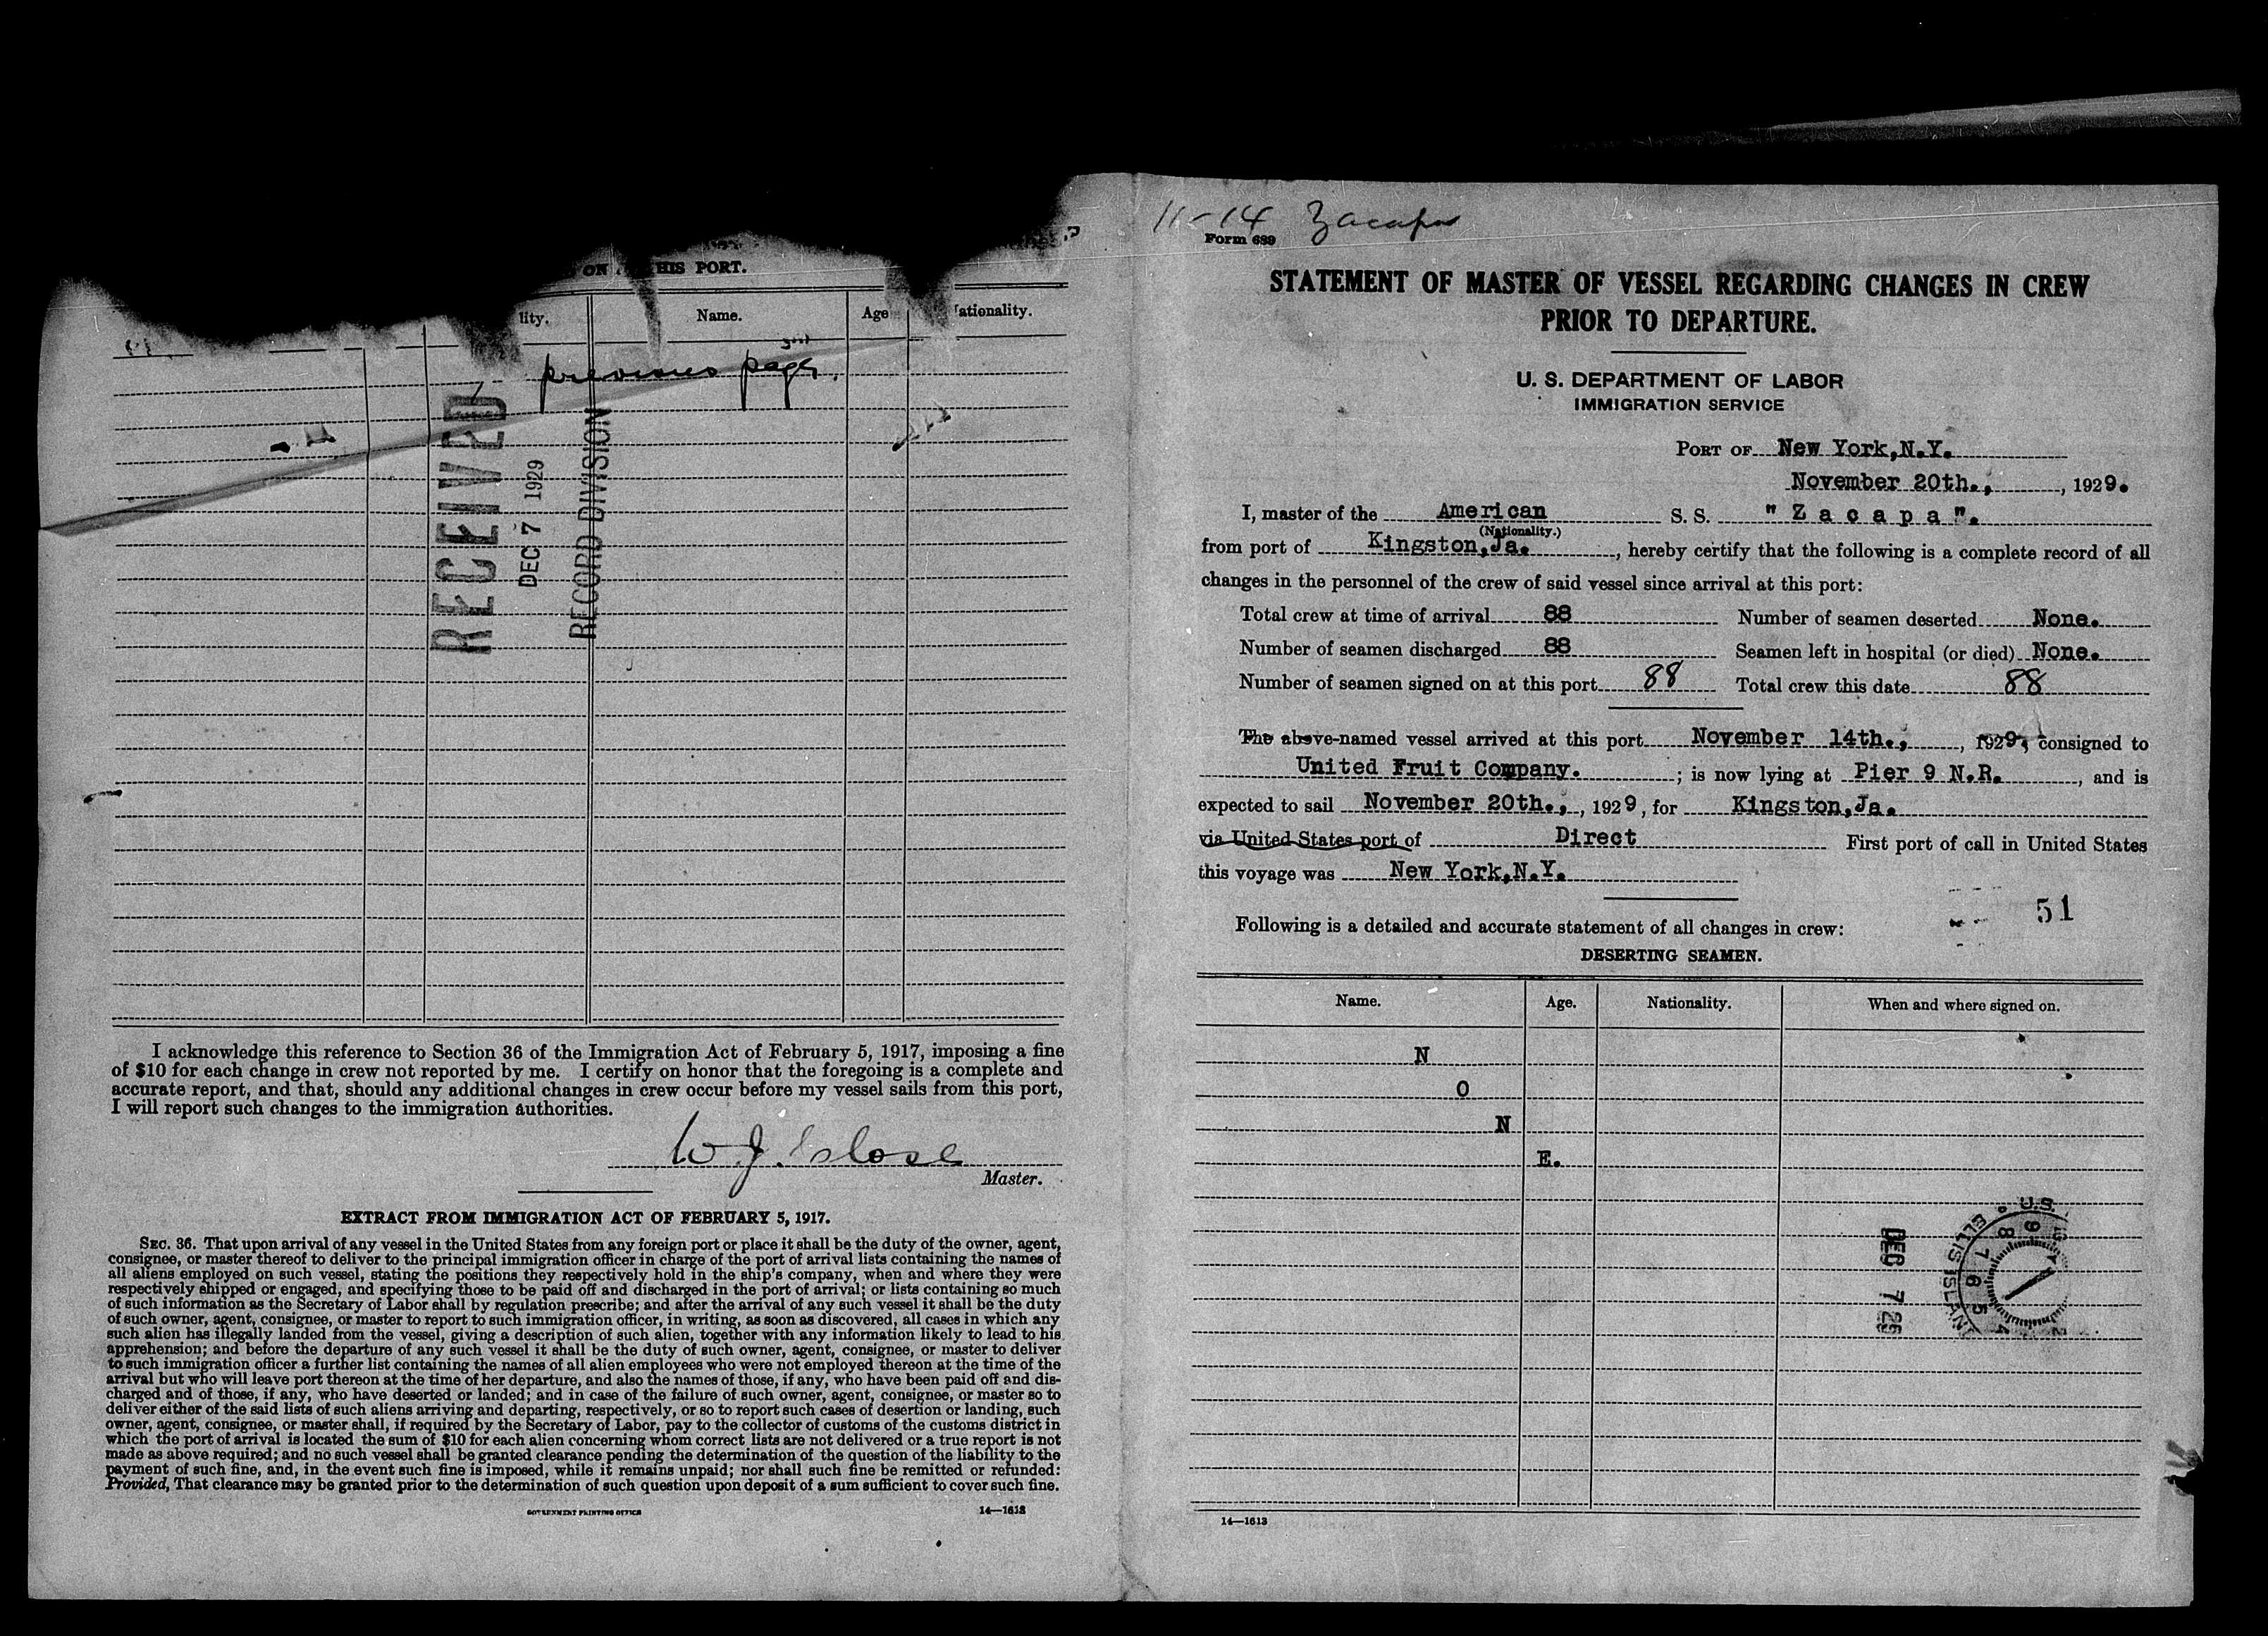 ON
HIS PORT.
lity.
Name.
Age
ationality.
previous page.
RECEIVED
DEC 7 1929
RECORD DIVISION
I acknowledge this reference to Section 36 of the Immigration Act of February 5, 1917, imposing a fine
of $10 for each change in crew not reported by me. I certify on honor that the foregoing is a complete and
accurate report, and that, should any additional changes in crew occur before my vessel sails from this port,
I will report such changes to the immigration authorities.
W. J. Close
Master.
EXTRACT FROM IMMIGRATION ACT OF FEBRUARY 5, 1917.
SEC. 36. That upon arrival of any vessel in the United States from any foreign port or place it shall be the duty of the owner, agent,
consignee, or master thereof to deliver to the principal immigration officer in charge of the port of arrival lists containing the names of
all aliens employed on such vessel, stating the positions they respectively hold in the ship's company, when and where they were
respectively shipped or engaged, and specifying those to be paid off and discharged in the port of arrival; or lists containing so much
of such information as the Secretary of Labor shall by regulation prescribe; and after the arrival of any such vessel it shall be the duty
of such owner, agent, consignee, or master to report to such immigration officer, in writing, as soon as discovered, all cases in which any
such alien has illegally landed from the vessel, giving a description of such alien, together with any information likely to lead to his
apprehension; and before the departure of any such vessel it shall be the duty of such owner, agent, consignee, or master to deliver
to such immigration officer a further list containing the names of all alien employees who were not employed thereon at the time of the
arrival but who will leave port thereon at the time of her departure, and also the names of those, if any, who have been paid off and dis-
charged and of those, if any, who have deserted or landed; and in case of the failure of such owner, agent, consignee, or master so to
deliver either of the said lists of such aliens arriving and departing, respectively, or so to report such cases of desertion or landing, such
owner, agent, consignee, or master shall, if required by the Secretary of Labor, pay to the collector of customs of the customs district in
which the port of arrival is located the sum of $10 for each alien concerning whom correct lists are not delivered or a true report is not
made as above required; and no such vessel shall be granted clearance pending the determination of the question of the liability to the
payment of such fine, and, in the event such fine is imposed, while it remains unpaid; nor shall such fine be remitted or refunded:
Provided, That clearance may be granted prior to the determination of such question upon deposit of a sum sufficient to cover such fine.
GOVERNMENT PRINTING OFFICE
14—1613
11-14 Zacapa
Form 689
STATEMENT OF MASTER OF VESSEL REGARDING CHANGES IN CREW
PRIOR TO DEPARTURE.
U. S. DEPARTMENT OF LABOR
IMMIGRATION SERVICE
PORT OF New York,N.Y.
November 20th., , 1929.
I, master of the American S. S. "Zacapa".
(Nationality.)
from port of Kingston,Ja. , hereby certify that the following is a complete record of all
changes in the personnel of the crew of said vessel since arrival at this port:
Total crew at time of arrival 88 Number of seamen deserted None.
Number of seamen discharged 88 Seamen left in hospital (or died) None.
Number of seamen signed on at this port 88 Total crew this date 88
The above-named vessel arrived at this port November 14th., , 1929, consigned to
United Fruit Company. ; is now lying at Pier 9 N.R. , and is
expected to sail November 20th., , 1929, for Kingston,Ja.
via United States port of Direct First port of call in United States
this voyage was New York,N.Y.
51
Following is a detailed and accurate statement of all changes in crew:
DESERTING SEAMEN.
Name. Age. Nationality. When and where signed on.
N
O
N
E.
DEC 7 29
U.S.
ELLIS ISLAN
14—1613